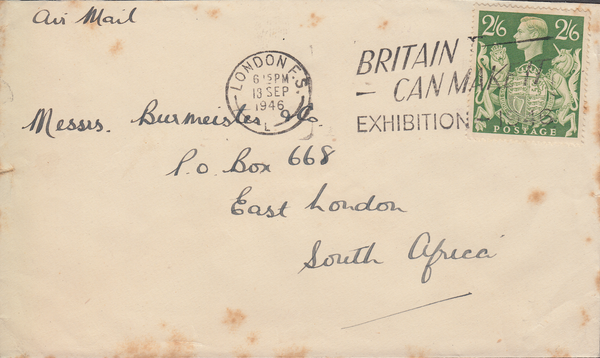 Air Mail
LONDON F.S.
6 15 PM
18 SEP
1946
L
BRITAIN
CAN MAKE IT
EXHIBITION
2/6 2/6
POSTAGE
Messrs. Burmeister & Co
P.O. Box 668
East London
South Africa